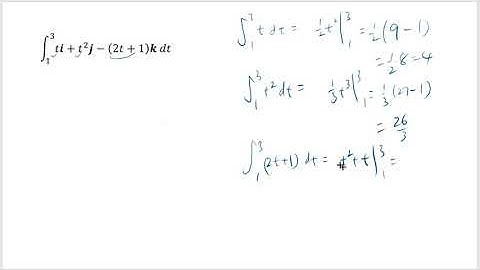 ∫₁³ ti + t²j − (2t + 1)k dt
∫₁³ t dt = ½t²|₁³ = ½(9 − 1)
= ½ 8 = 4
∫₁³ t² dt = ⅓t³|₁³ = ⅓(27 − 1)
= 26/3
∫₁³ (2t+1) dt = t² + t|₁³ =